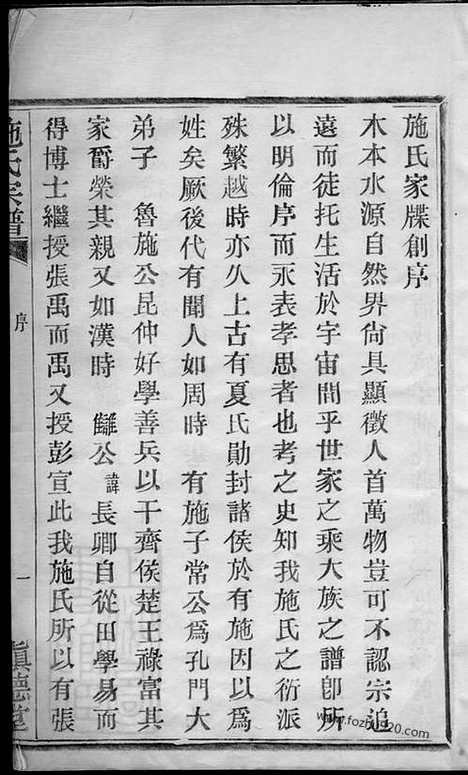 施氏家牒創序
木本水源自然界尙具顯徵人首萬物豈可不認宗追
遠而徒托生活於宇宙間乎世家之乘大族之譜卽所
以明倫序而永表孝思者也考之史知我施氏之衍派
殊繁越時亦久上古有夏氏勛封諸侯於有施因以爲
姓矣厥後代有聞人如周時 有施子常公爲孔門大
弟子 魯施公昆仲好學善兵以干齊侯楚王祿富其
家爵榮其親又如漢時 讎公諱長卿自從田學易而
得博士繼授張禹而禹又授彭宣此我施氏所以有張
施氏宗譜
序
一
慎德堂
www.fozhu920.com